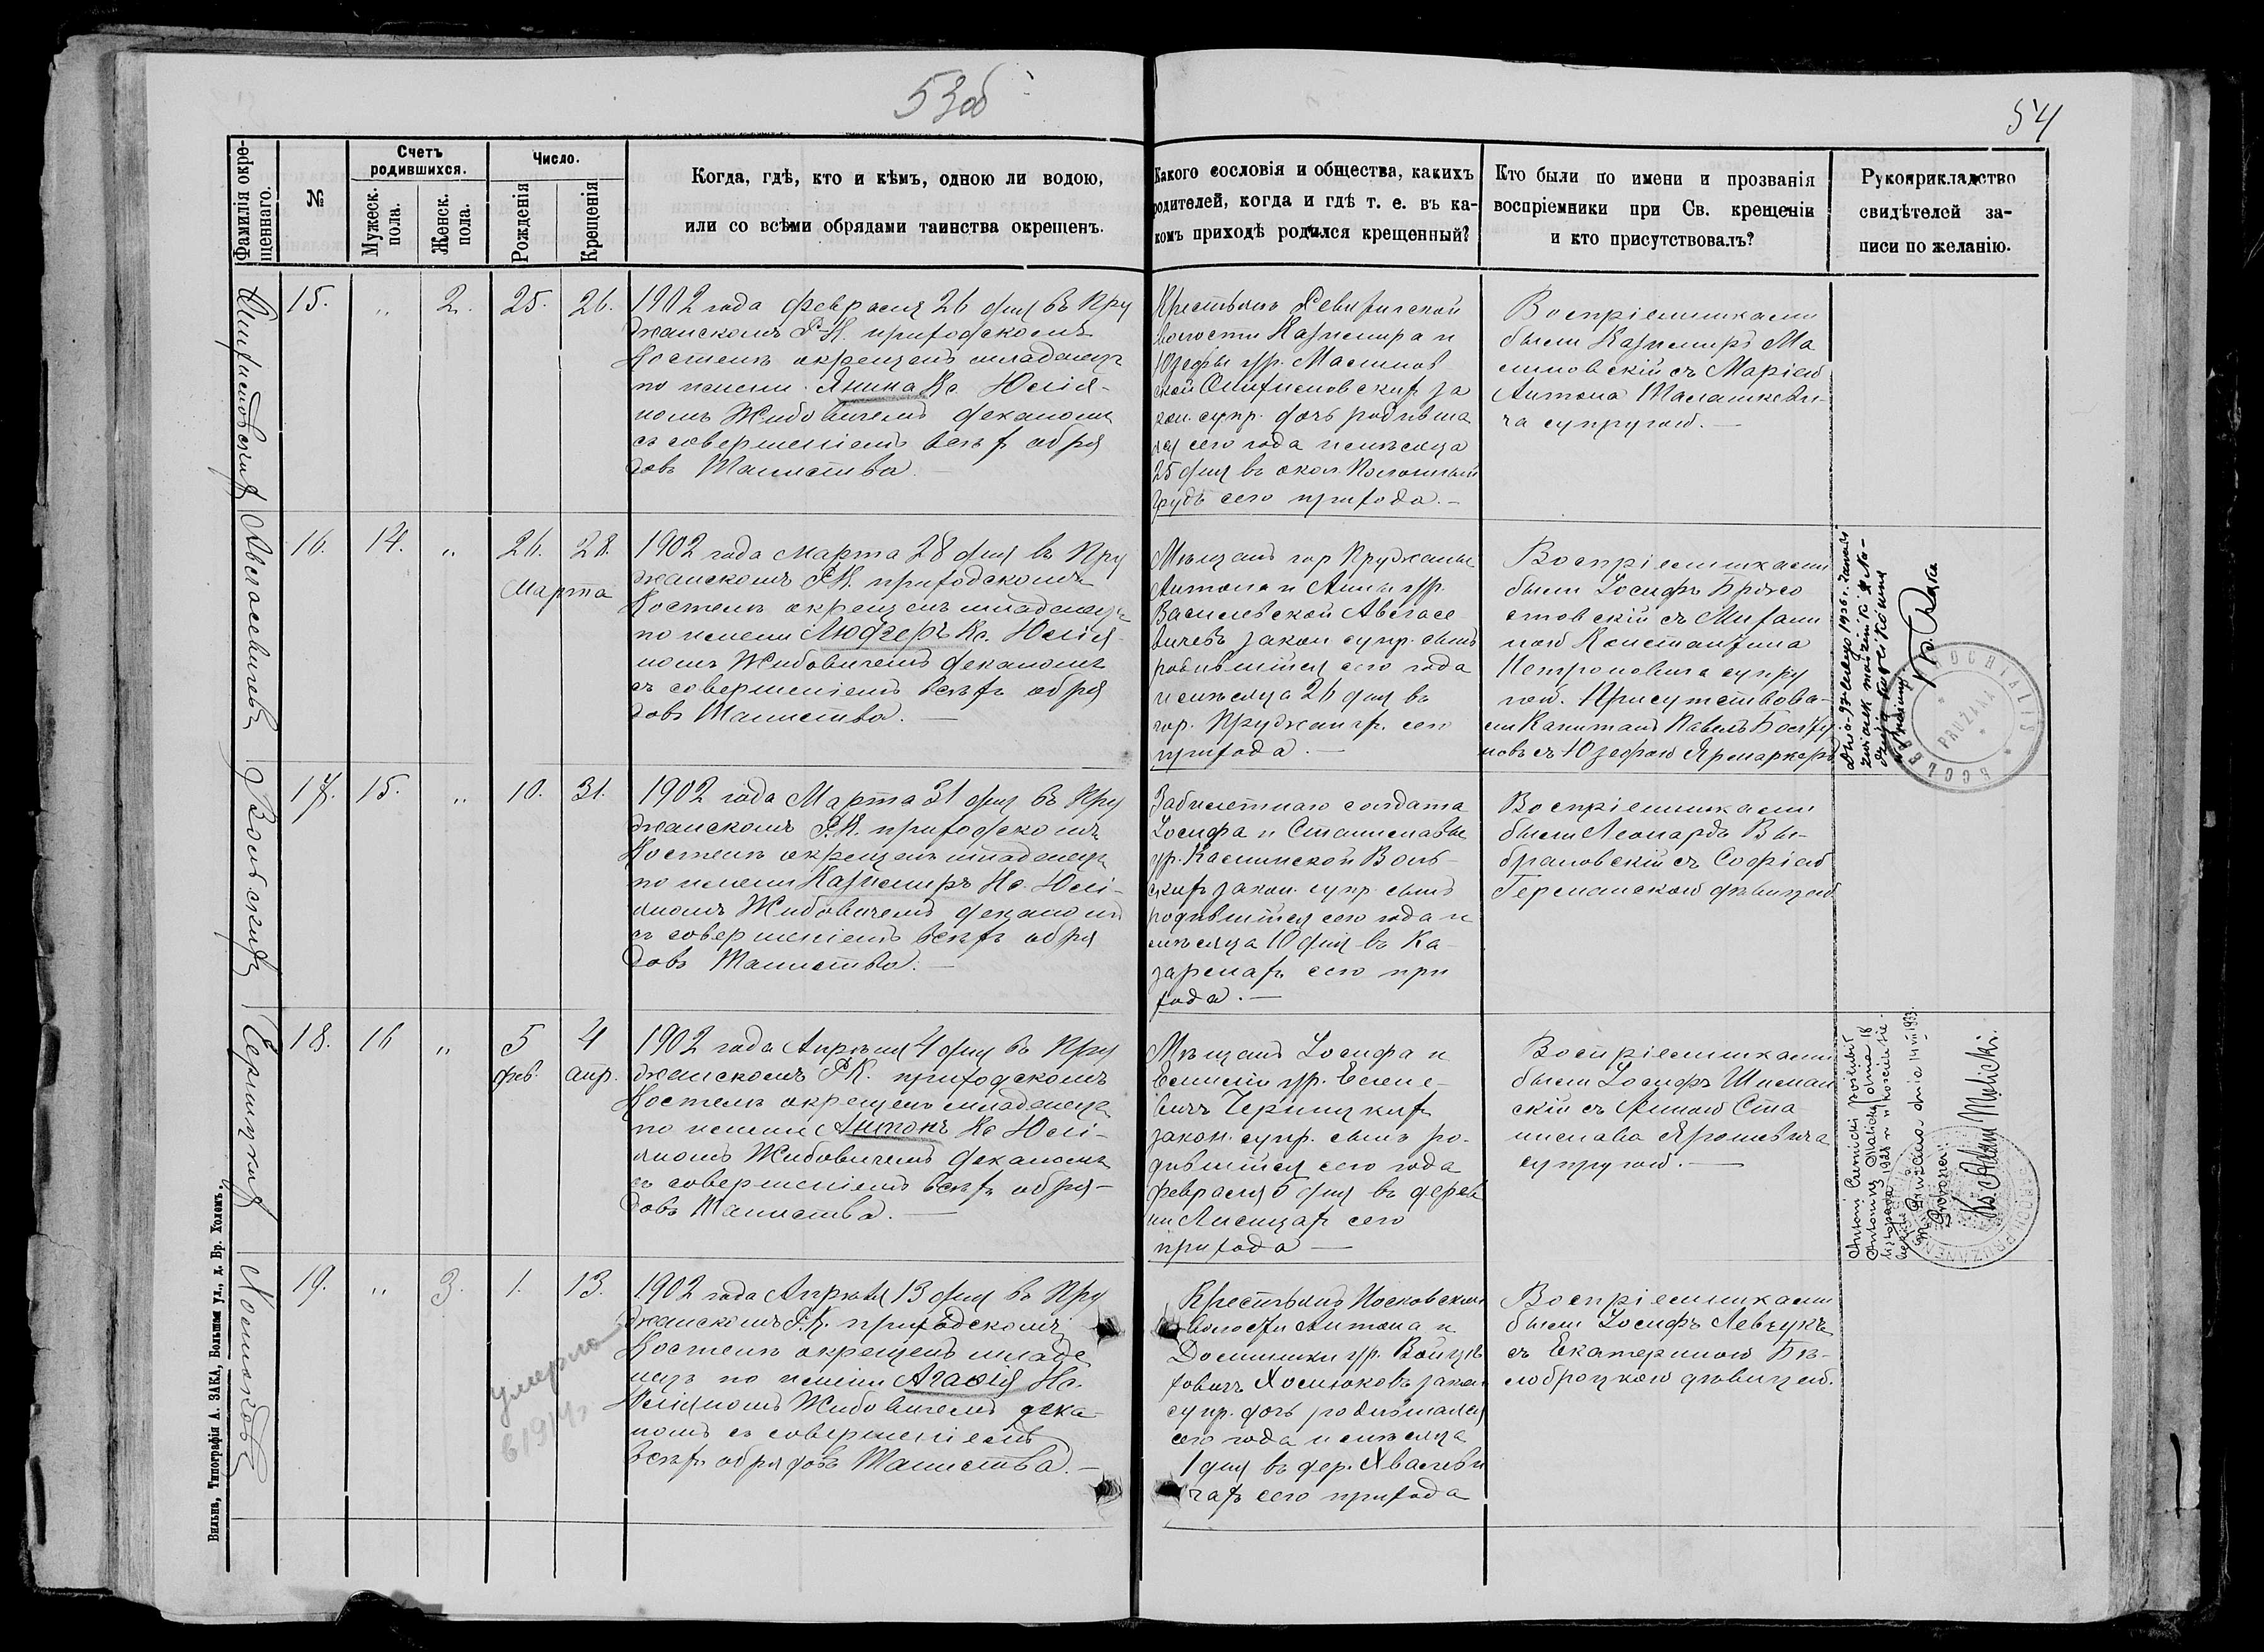 53об
54
Фамилія окре-
щеннаго.
№
Счетъ
родившихся.
Мужеск.
пола.
Женск.
пола.
Число.
Рожденія
Крещенія
Когда, гдѣ, кто и кѣмъ, одною ли водою,
или со всѣми обрядами таинства окрещенъ.
Какого сословія и общества, какихъ
родителей, когда и гдѣ т. е. въ ка-
комъ приходѣ родился крещенный?
Кто были по имени и прозванія
воспріемники при Св. крещеніи
и кто присутствовалъ?
Рукоприкладство
свидѣтелей за-
писи по желанію.
15. „ 2. 25. 26.
1902 года февраля 26 дня въ Пру
жанскомъ Р.-К. приходскомъ
Костелѣ окрещенъ младенецъ
по имени Янина Кс. Юлія-
номъ Жибовичемъ деканомъ
съ совершеніемъ всѣхъ обря
довъ Таинства.
Крестьянъ
волости Казимира и
Юзефы ур. Малинов
ской за
кон. супр. дочь родивша
яся сего года и мѣсяца
25 дня въ окол.
Грудъ сего прихода.
Воспріемниками
были Казимиръ Ма
линовскій съ Маріею
Антона
ча супругою.
16. 14. „ 26. 28.
Марта
1902 года Марта 28 дня въ Пру
жанскомъ Р.К. приходскомъ
Костелѣ окрещенъ младенецъ
по имени Люцеръ Кс. Юлія-
номъ Жибовичемъ деканомъ
съ совершеніемъ всѣхъ обря
довъ Таинства.
Мѣщанъ гор. Пружаны
Антона и Анны ур.
Василевской Авгасе
вичевъ закон. супр. сынъ
родившійся сего года
и мѣсяца 26 дня въ
гор. Пружанахъ сего
прихода.
Воспріемниками
были Іосифъ
стовскій съ
ною Константина
Петроневича супру
гою. Присутствова-
ли Капитанъ Павелъ
новъ съ Юзефою
Kś.
PRUŻANA
17. 15. „ 10. 31.
1902 года Марта 31 дня въ Пру
жанскомъ Р.К. приходскомъ
Костелѣ окрещенъ младенецъ
по имени Казимиръ Кс. Юлі-
аномъ Жибовичемъ деканомъ
съ совершеніемъ всѣхъ обря
довъ Таинства.
Забилетнаго солдата
Іосифа и Станиславы
ур. Калинской Воль-
скихъ закон. супр. сынъ
родившійся сего года и
мѣсяца 10 дня въ Ка-
зармахъ сего при
хода.
Воспріемниками
были Леонардъ Вы-
брановскій съ Софіею
Германскою дѣвицею
18. 16 „ 5 4
фев. апр.
1902 года Апрѣля 4 дня въ Пру
жанскомъ Р.К. приходскомъ
Костелѣ окрещенъ младенецъ
по имени Антонъ Кс. Юлі-
аномъ Жибовичемъ деканомъ
съ совершеніемъ всѣхъ обря-
довъ Таинства.
Мѣщанъ Іосифа и
Емиліи ур. Селене-
вичъ Черницкихъ
закон. супр. сынъ ро-
дившійся сего года
февраля 5 дня въ дерев
ни Лисицахъ сего
прихода
Воспріемниками
были Іосифъ Шиман
скій съ Анною Ста
нислава Ярошевича
супругою.
Antoni Czernicki poślubił
Antoninę Malicką dnia 18
listopada 1928 r. w kościele
Prużana dnia 14 VII 1933.
Proboszcz:
Ks. Adam Malicki.
19. „ 3. 1. 13.
умерла
в 1914 г
1902 года Апрѣля 13 дня въ Пру
жанскомъ Р.К. приходскомъ
Костелѣ окрещенъ младе
нецъ по имени Агафія Кс.
Юліяномъ Жибовичемъ дека-
номъ съ совершеніемъ
всѣхъ обрядовъ Таинства.
Крестьянъ Носковской
волости Антона и
Доминики ур. Войцѣ
ховичъ Хомюковъ закон.
супр. дочь родившаяся
сего года и мѣсяца
1 дня въ дер. Хвалеви
чахъ сего прихода
Воспріемниками
были Іосифъ Левчукъ
съ Екатериною Бѣ-
лоброцкою дѣвицею.
Вильна, Типографія А. ЗАКА, Большая ул., д. Бр. Холемъ.